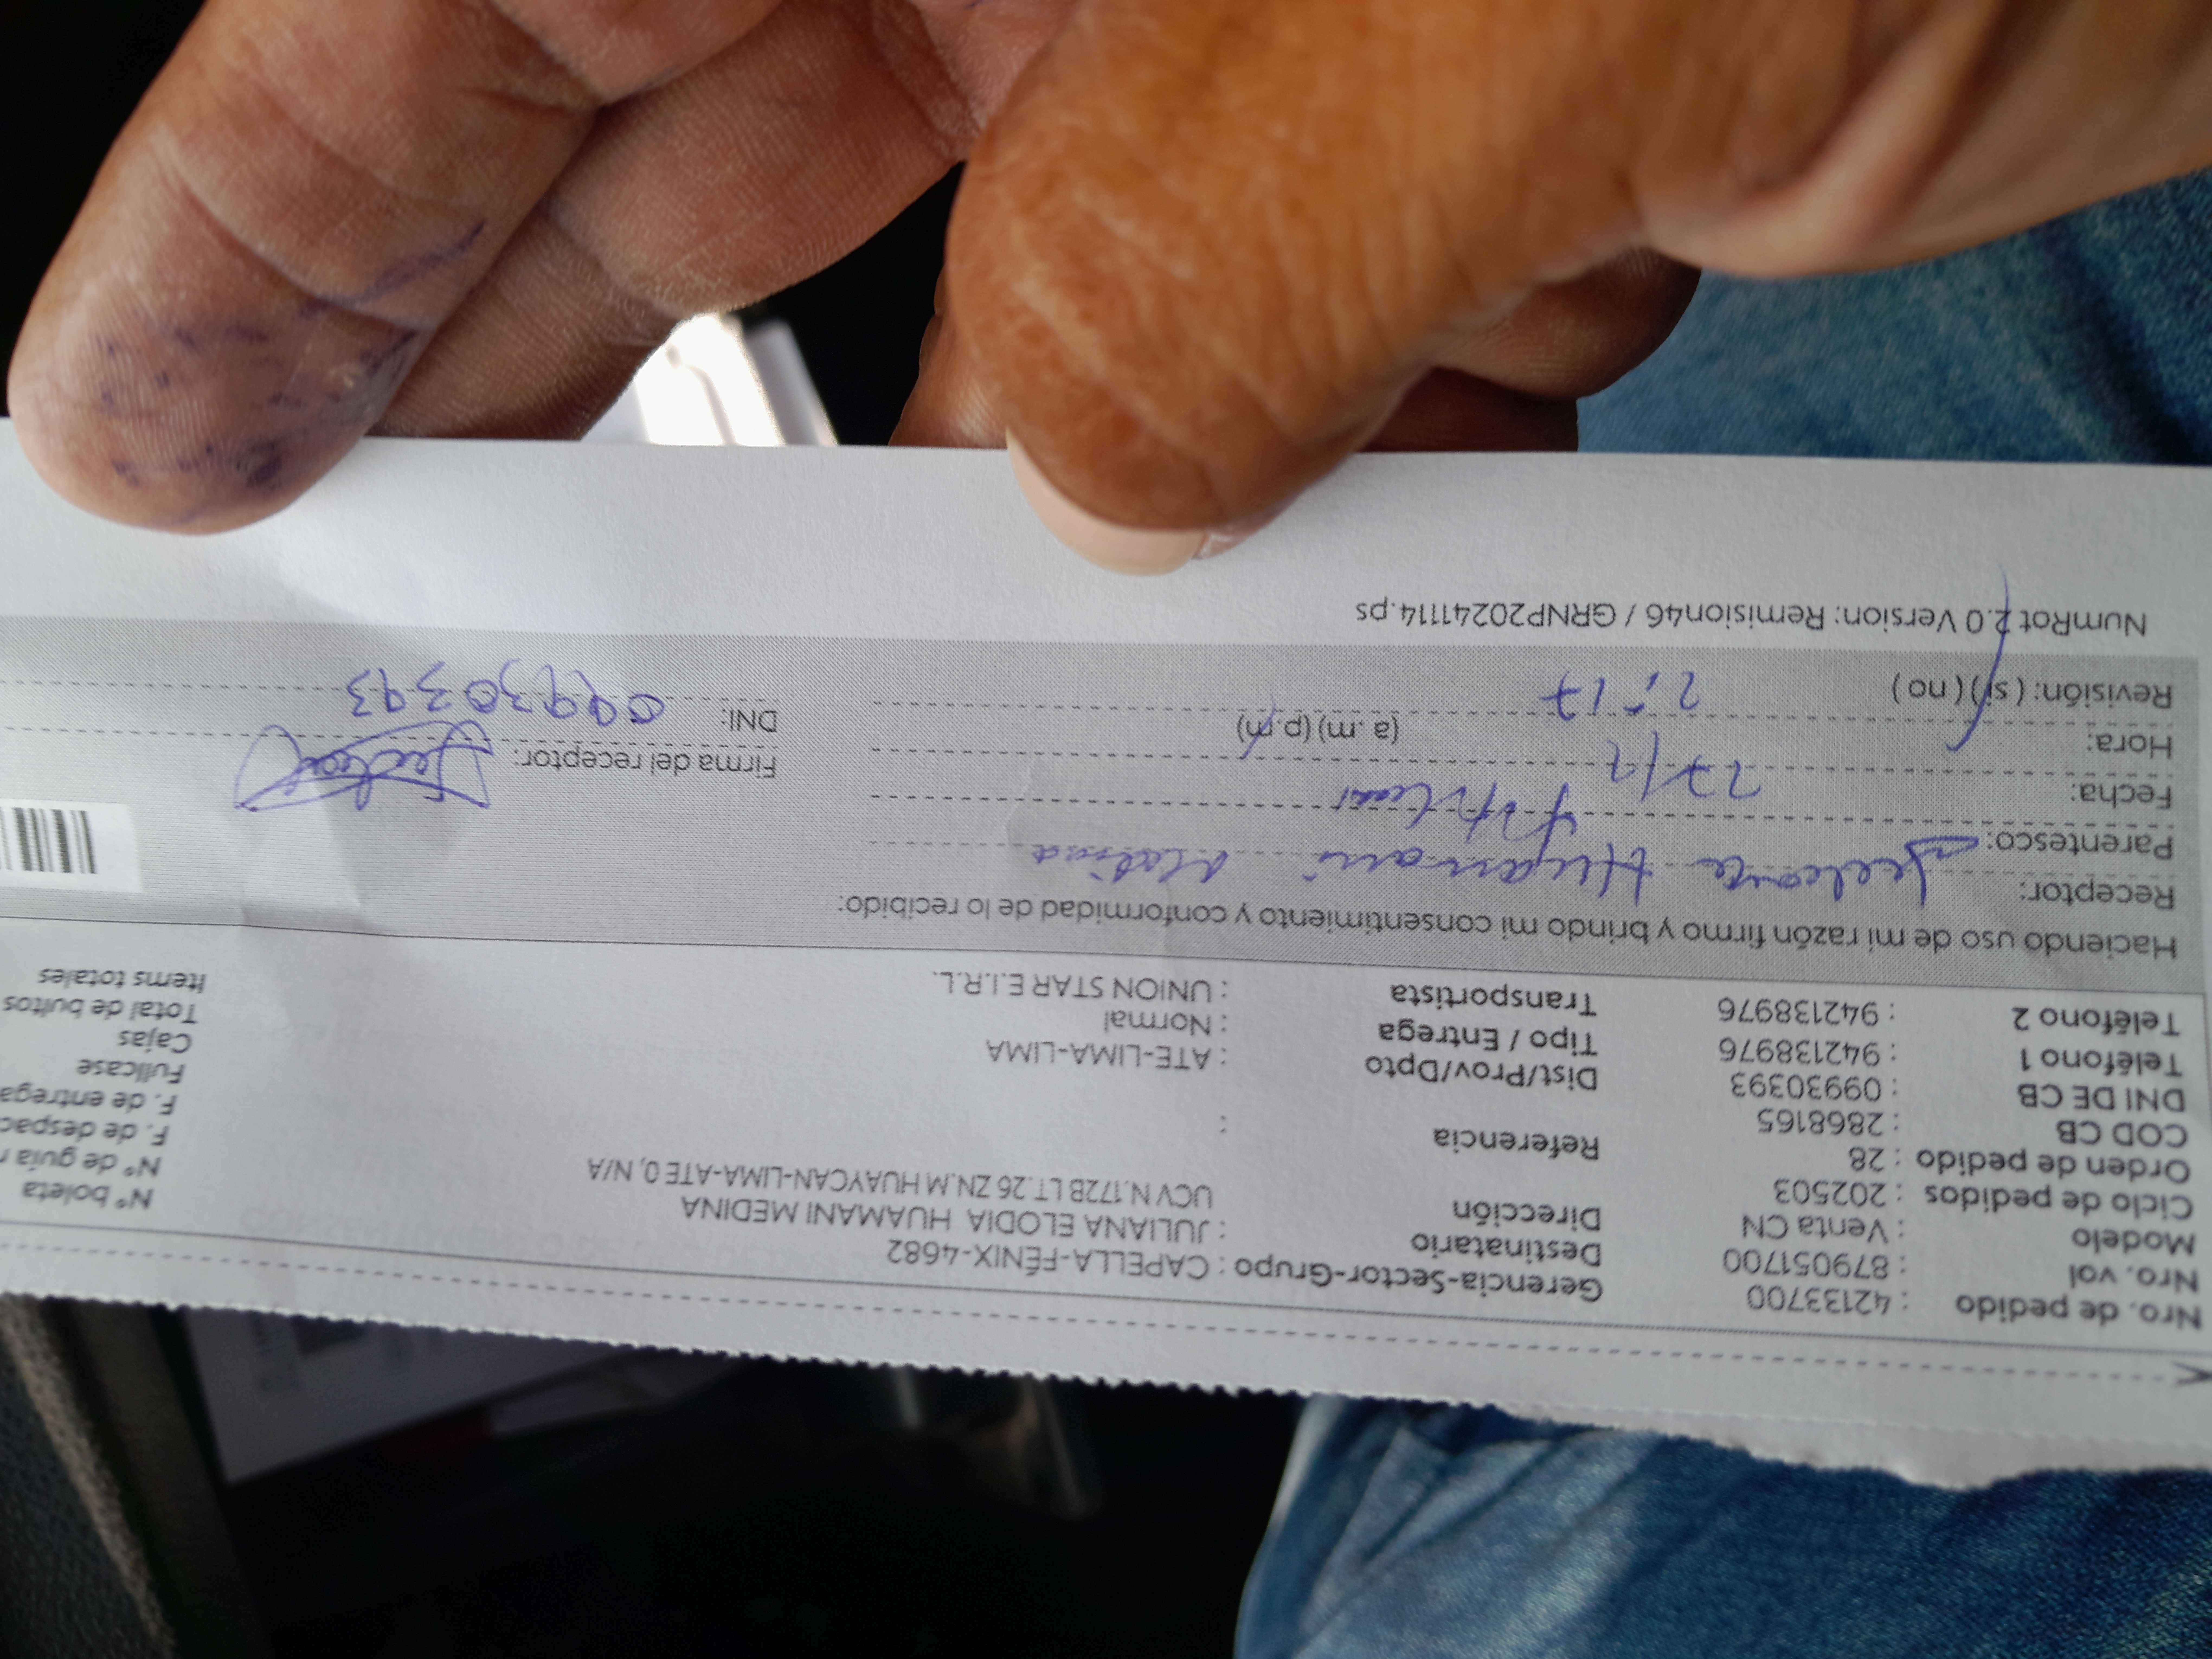 Nro. de pedido : 42133700
Nro. vol : 879051700
Modelo : Venta CN
Ciclo de pedidos : 202503
Orden de pedido : 28
COD CB : 2868165
DNI DE CB : 09930393
Teléfono 1 : 942138976
Teléfono 2 : 942138976
Gerencia-Sector-Grupo : CAPELLA-FÉNIX-4682
Destinatario : JULIANA ELODIA HUAMANI MEDINA
Dirección UCV N.172B LT.26 ZN.M HUAYCAN-LIMA-ATE 0, N/A
Referencia :
Dist/Prov/Dpto : ATE-LIMA-LIMA
Tipo / Entrega : Normal
Transportista : UNION STAR E.I.R.L.
N° boleta
N° de guía
F. de despac
F. de entrega
Fullcase
Cajas
Total de bultos
Items totales
Haciendo uso de mi razón firmo y brindo mi consentimiento y conformidad de lo recibido:
Receptor: Huamani Medina
Parentesco: Titular
Fecha:
Hora: 2:17 (a .m) (p.m)
Revisión: ( si ) ( no )
Firma del receptor:
DNI: 09930393
NumRot 2.0 Version: Remision46 / GRNP20241114.ps